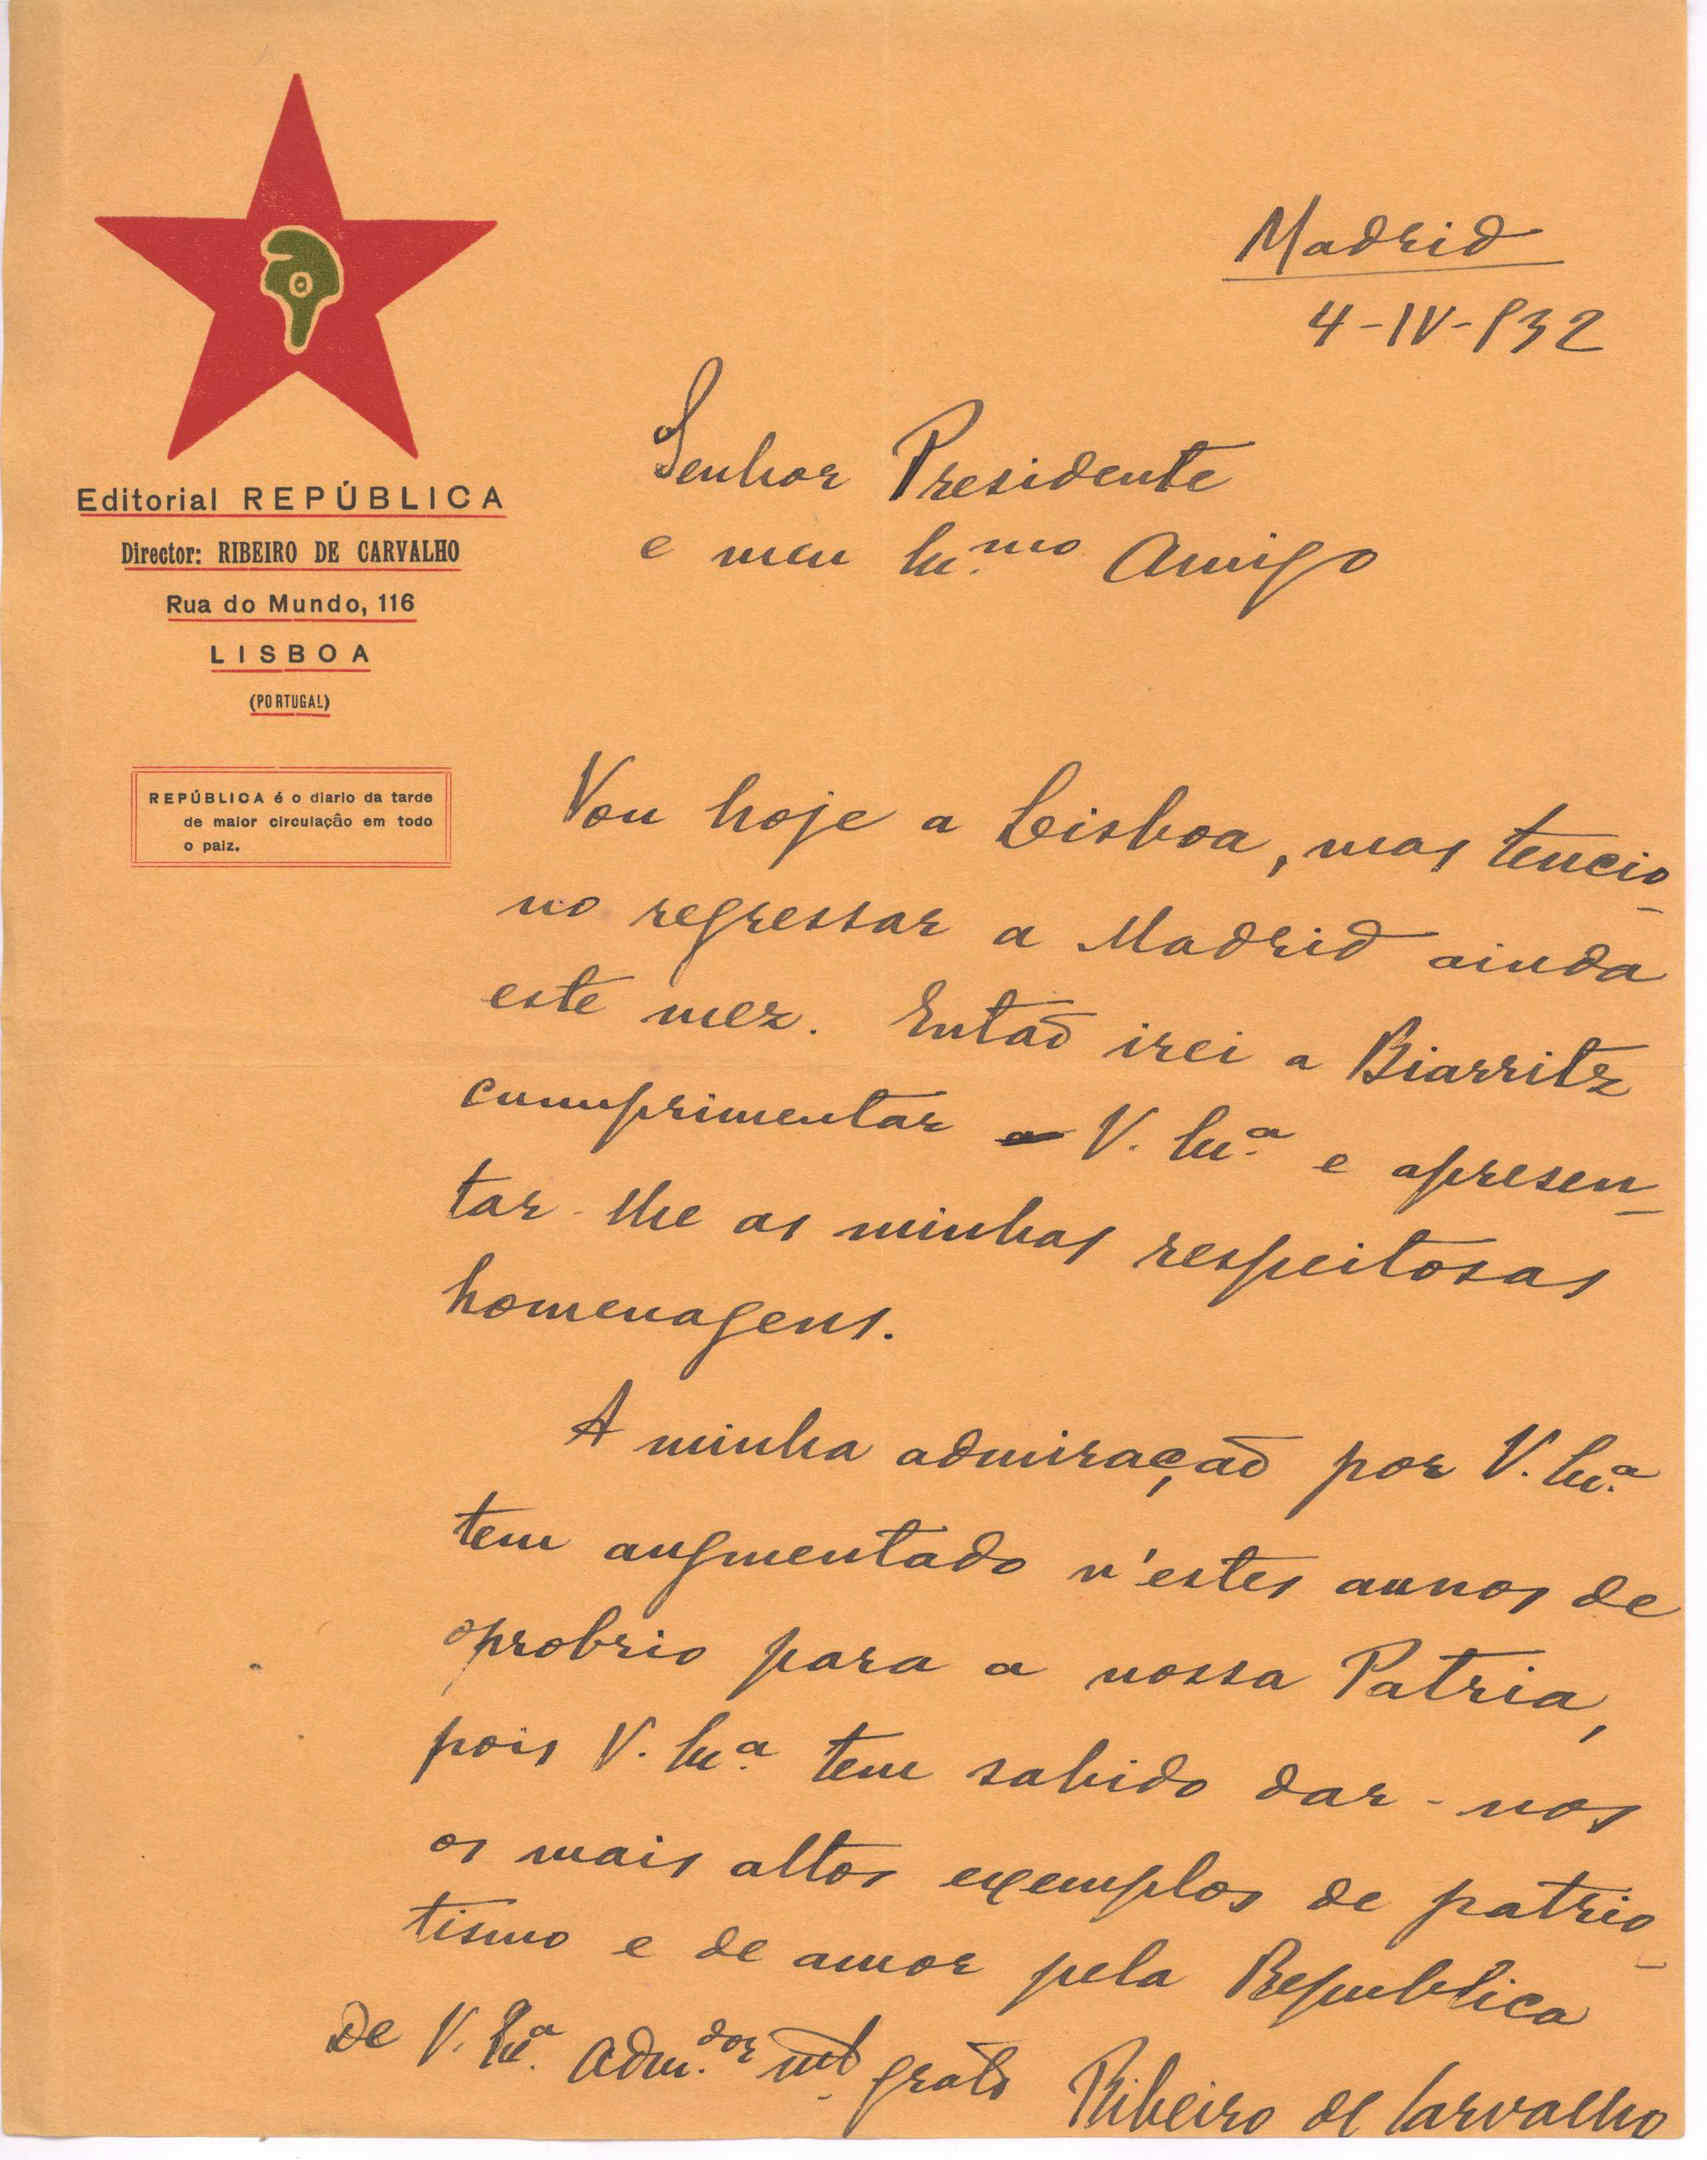 Editorial REPÚBLICA
Director: RIBEIRO DE CARVALHO
Rua do Mundo, 116
LISBOA
(PORTUGAL)
REPÚBLICA é o diario da tarde
de maior circulação em todo
o paiz.
Madrid
4-IV-932
Senhor Presidente
e meu Ex.mo Amigo
Vou hoje a Lisboa, mas tencio-
no regressar a Madrid ainda
este mez. Então irei a Biarritz
cumprimentar V. Ex.a e apresen-
tar-lhe as minhas respeitosas
homenagens.
A minha admiração por V. Ex.a
tem augmentado n'estes annos de
oprobrio para a nossa Patria,
pois V. Ex.a tem sabido dar-nos
os mais altos exemplos de patrio-
tismo e de amor pela Republica
De V. Ex.a Adm.dor mt.o grato Ribeiro de Carvalho